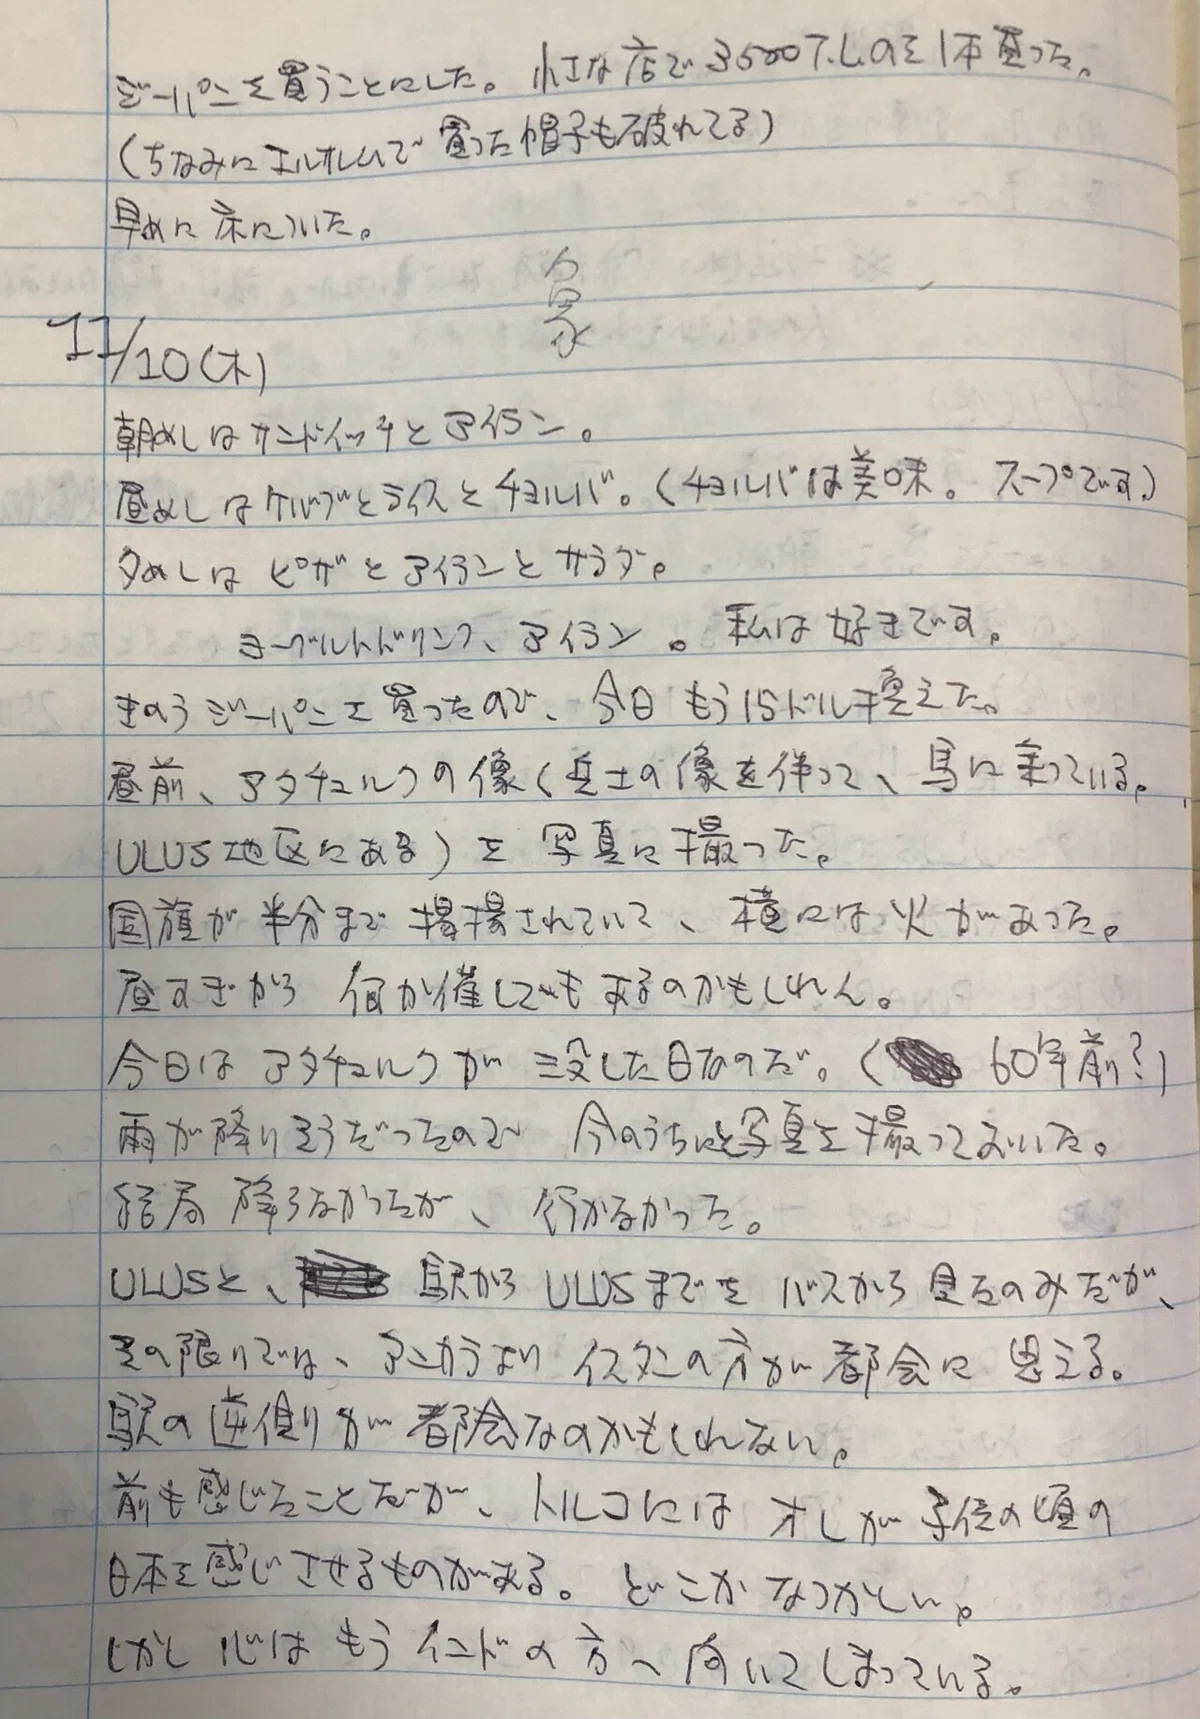 ジーパンを買うことにした。小さな店で35000T.Lのを1本買った。
(ちなみにエルサレムで買った帽子も破れてる)
早めに床についた。
象
11/10(木)
朝めしはサンドイッチとアイラン。
昼めしはケバブとライスとチョルバ。(チョルバは美味。スープです)
夕めしはピザとアイランとサラダ。
ヨーグルトドリンク、アイラン。私は好きです。
きのうジーパンを買ったので、今日もう15ドル換えた。
昼前、アタチュルクの像(兵士の像を伴って、馬に乗っている。
ULUS地区にある)を写真に撮った。
国旗が半分まで掲揚されていて、横には火があった。
昼すぎから何か催しでもあるのかもしれん。
今日はアタチュルクが没した日なのだ。(60年前?)
雨が降りそうだったので今のうちにと写真を撮っておいた。
結局降らなかったが、行かなかった。
ULUSと、駅からULUSまでをバスから見たのみだが、
その限りでは、アンカラよりイスタンの方が都会に思える。
駅の逆側が都会なのかもしれない。
前も感じたことだが、トルコにはオレが子供の頃の
日本を感じさせるものがある。どこかなつかしい。
しかし心はもうインドの方へ向いてしまっている。